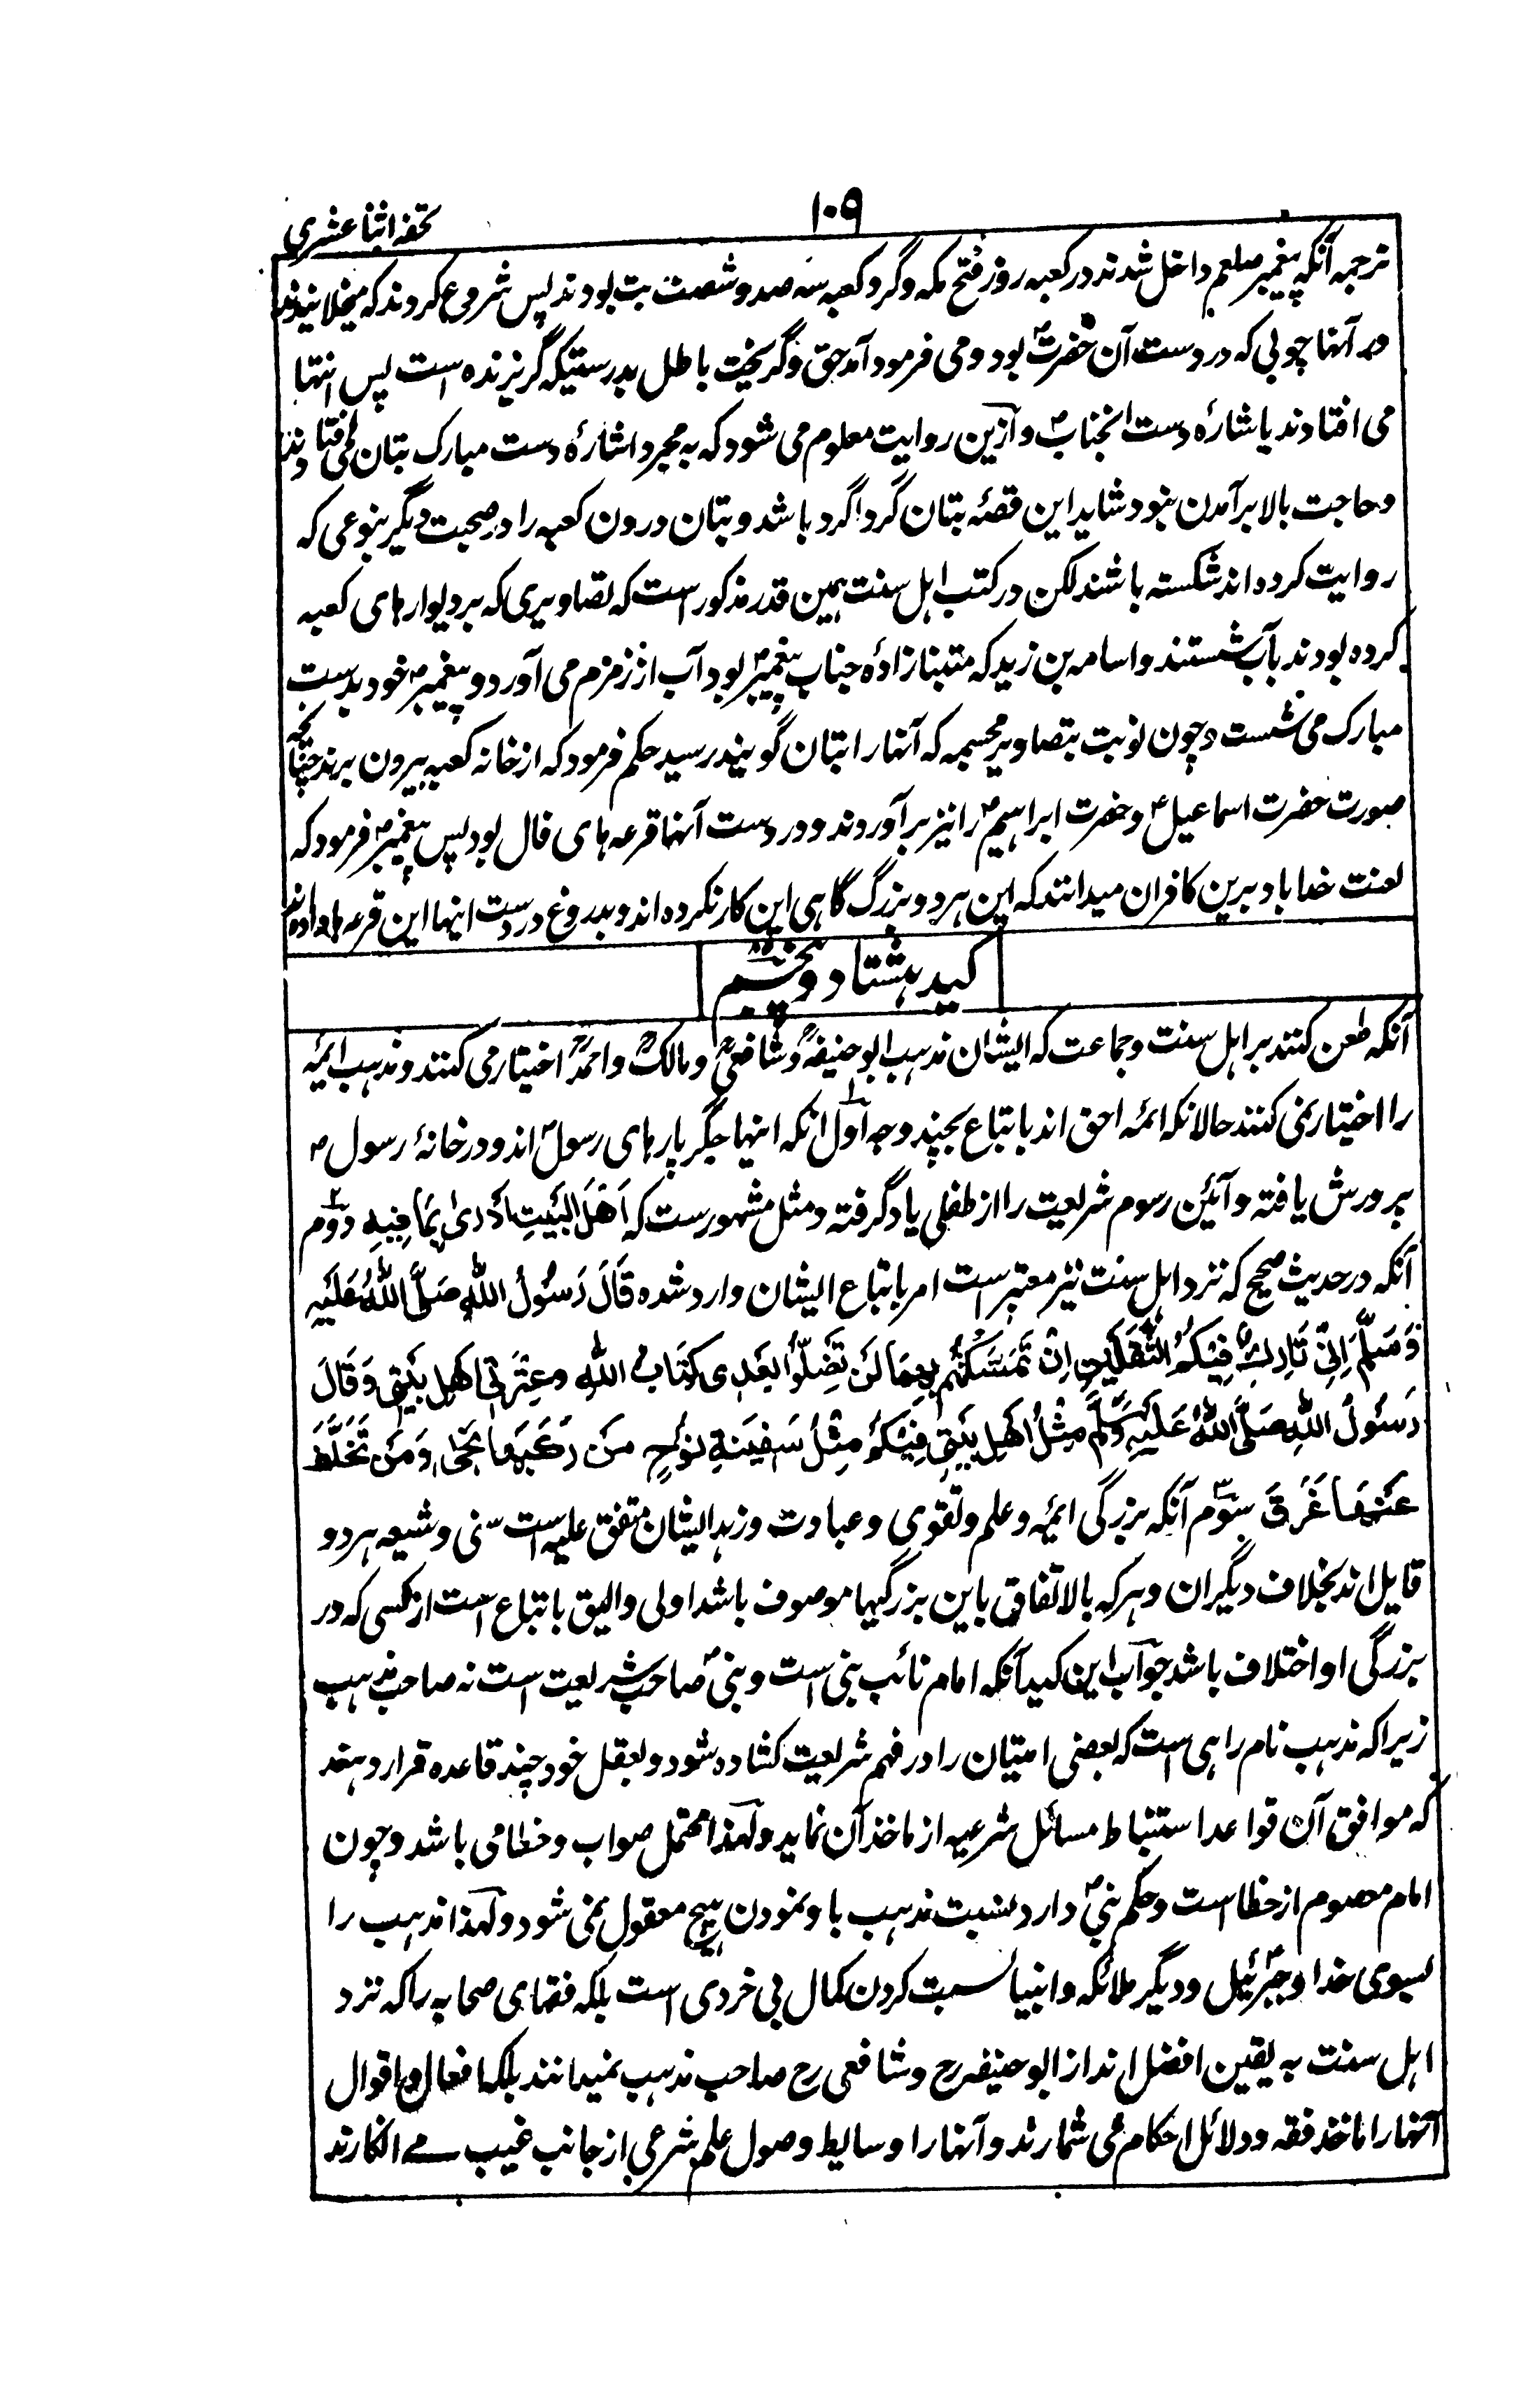 ۱۰۹
تحفه اثنا عشری
ترجمه آنکه پیغمبر صلعم داخل شدند در کعبه روز فتح مکه و گرد کعبه سه صد و شصت بت بودند پس شروع کردند که میخلانیدند
در آنها چوبی که در دست آن حضرتؐ بود و می فرمود آمد حق و گریخت باطل بدرستیکه گریزنده است پس انتها
می افتادند باشارهٔ دست آنجنابؐ و ازین روایت معلوم می شود که به مجرد اشارهٔ دست مبارک بتان می افتادند
و حاجت بالا برآمدن نبود شاید این قصهٔ بتان گرداگرد باشد و بتان درون کعبه را در صحبت دیگر بنوعی که
روایت کرده اند شکسته باشند لکن در کتب اہل سنت ہمین قدر مذکور است که تصاویری که بر دیوارہای کعبه
کرده بودند بآب شستند و اسامه بن زید که متبنا زادهٔ جناب پیغمبرؐ بود آب از زمزم می آورد و پیغمبرؐ خود بدست
مبارک می شست و چون نوبت بتصاویر مجسمه که آنها را بتان گویند رسید حکم فرمود که از خانه کعبه بیرون برند چنانچه
صورت حضرت اسماعیلؑ و حضرت ابراہیمؑ را نیز برآوردند و در دست آنها قرعه ہای فال بود پس پیغمبرؐ فرمود که
لعنت خدا باد برین کافران میدانند که این ہر دو بزرگ گاہی این کار نکرده اند و بدروغ در دست اینها این قرعه ہا داده اند
کید ہشتاد و پنجم
آنکه طعن کنند بر اہل سنت و جماعت که ایشان مذہب ابوحنیفهؒ و شافعیؒ و مالکؒ و احمدؒ اختیار می کنند و مذہب ایمه
را اختیار نمی کنند حالانکه ائمه احق اند باتباع بچند وجه اول آنکه اینها جگر پارہای رسولؐ اند و در خانهٔ رسولؐ
پرورش یافته و آئین رسوم شریعت را از طفلی یاد گرفته و مثل مشهورست که اَهْلُ الْبَیْتِ اَدْریٰ بِمَا فِیْهِ دوم
آنکه در حدیث صحیح که نزد اہل سنت نیز معتبر است امر باتباع ایشان وارد شده قَالَ رَسُوْلُ اللّٰهِ صَلَّی اللّٰهُ عَلَیْهِ
وَسَلَّمَ اِنِّیْ تَارِکٌ فِیْکُمُ الثَّقَلَیْنِ اِنْ تَمَسَّکْتُمْ بِهِمَا لَنْ تَضِلُّوْا بَعْدِی کِتَابُ اللّٰهِ وَعِتْرَتِیْ اَهْلِ بَیْتِیْ وَقَالَ
رَسُوْلُ اللّٰهِ صَلَّی اللّٰهُ عَلَیْهِ وَسَلَّمَ مِثْلُ اَهْلِ بَیْتِیْ فِیْکُمْ مِثْلُ سَفِیْنَةِ نُوْحٍ مَنْ رَکِبَهَا نَجٰی وَمَنْ تَخَلَّفَ
عَنْهَا غَرَقَ سوم آنکه بزرگی ایمه و علم و تقوی و عبادت و زہد ایشان متفق علیه است سنی و شیعه ہر دو
قایل اند بخلاف دیگران و ہر که بالاتفاق باین بزرگیها موصوف باشد اولی و الیق باتباع است از کسی که در
بزرگی او اختلاف باشد جواب این کید آنکه امام نائب نبی است و نبیؐ صاحب شریعت است نه صاحب مذہب
زیرا که مذہب نام راہی است که بعضی امتیان را در فهم شریعت کشاده شود و بعقل خود چند قاعده قرار دہند
که موافق آن قواعد استنباط مسائل شرعیه از ماخذ آن نماید و لهذا محتمل صواب و خطا می باشد و چون
امام معصوم از خطا است و حکم نبیؐ دارد نسبت مذہب باو نمودن ہیچ معقول نمی شود و لهذا مذہب را
بسوی خدا و جبرئیلؑ و دیگر ملائکه و انبیا نسبت کردن کمال بی خردی است بلکه فقهای صحابه را که نزد
اہل سنت به یقین افضل اند از ابوحنیفه رح و شافعی رح صاحب مذہب نمیدانند بلکه افعال و اقوال
آنها را ماخذ فقه و دلائل احکام می شمارند و آنها را وسایط وصول علم شرعی از جانب غیب می انگارند